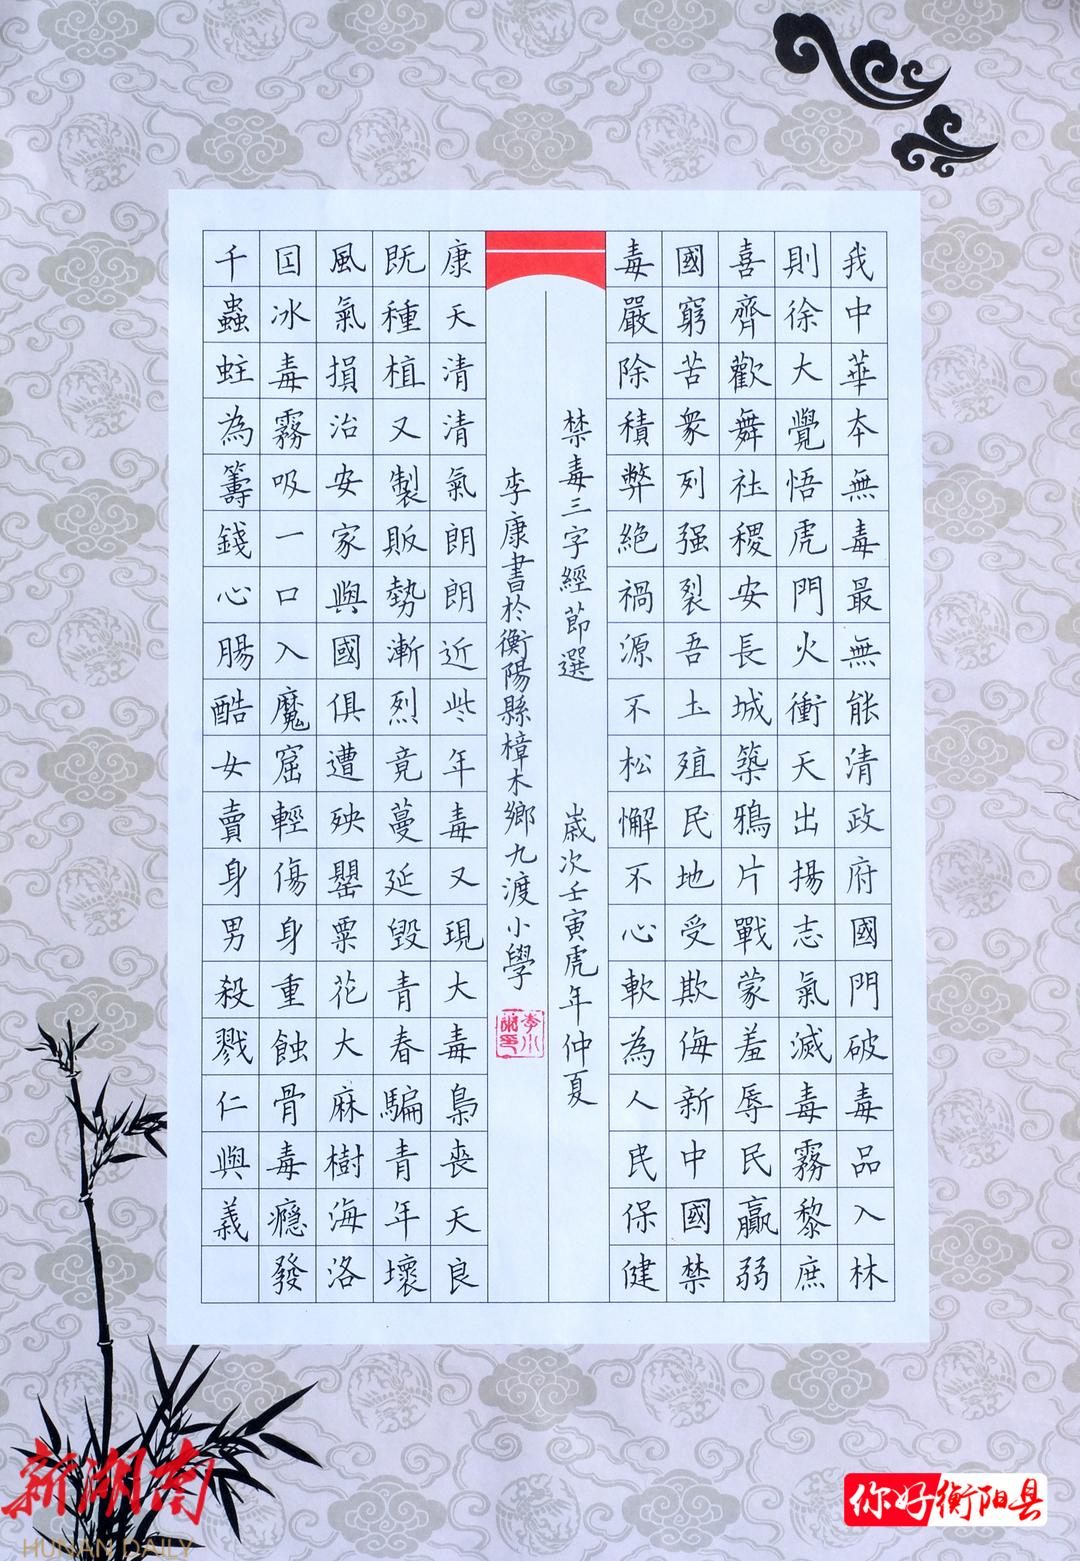 我中華本無毒最無能清政府國門破毒品入林
則徐大覺悟虎門火衝天出揚志氣滅毒霧黎庶
喜齊歡舞社稷安長城築鴉片戰蒙羞辱民贏弱
國窮苦衆列强裂吾土殖民地受欺侮新中國禁
毒嚴除積弊絕禍源不松懈不心軟為人民保健
禁毒三字經節選 歲次壬寅虎年仲夏
李康書於衡陽縣樟木鄉九渡小學
康天清清氣朗朗近些年毒又現大毒梟喪天良
既種植又製販勢漸烈竟蔓延毀青春騙青年壞
風氣損治安家與國俱遭殃罌粟花大麻樹海洛
因冰毒霧吸一口入魔窟輕傷身重蝕骨毒癮發
千蟲蛀為籌錢心腸酷女賣身男殺戮仁與義
新湖南
HUNAN DAILY
你好衡阳县